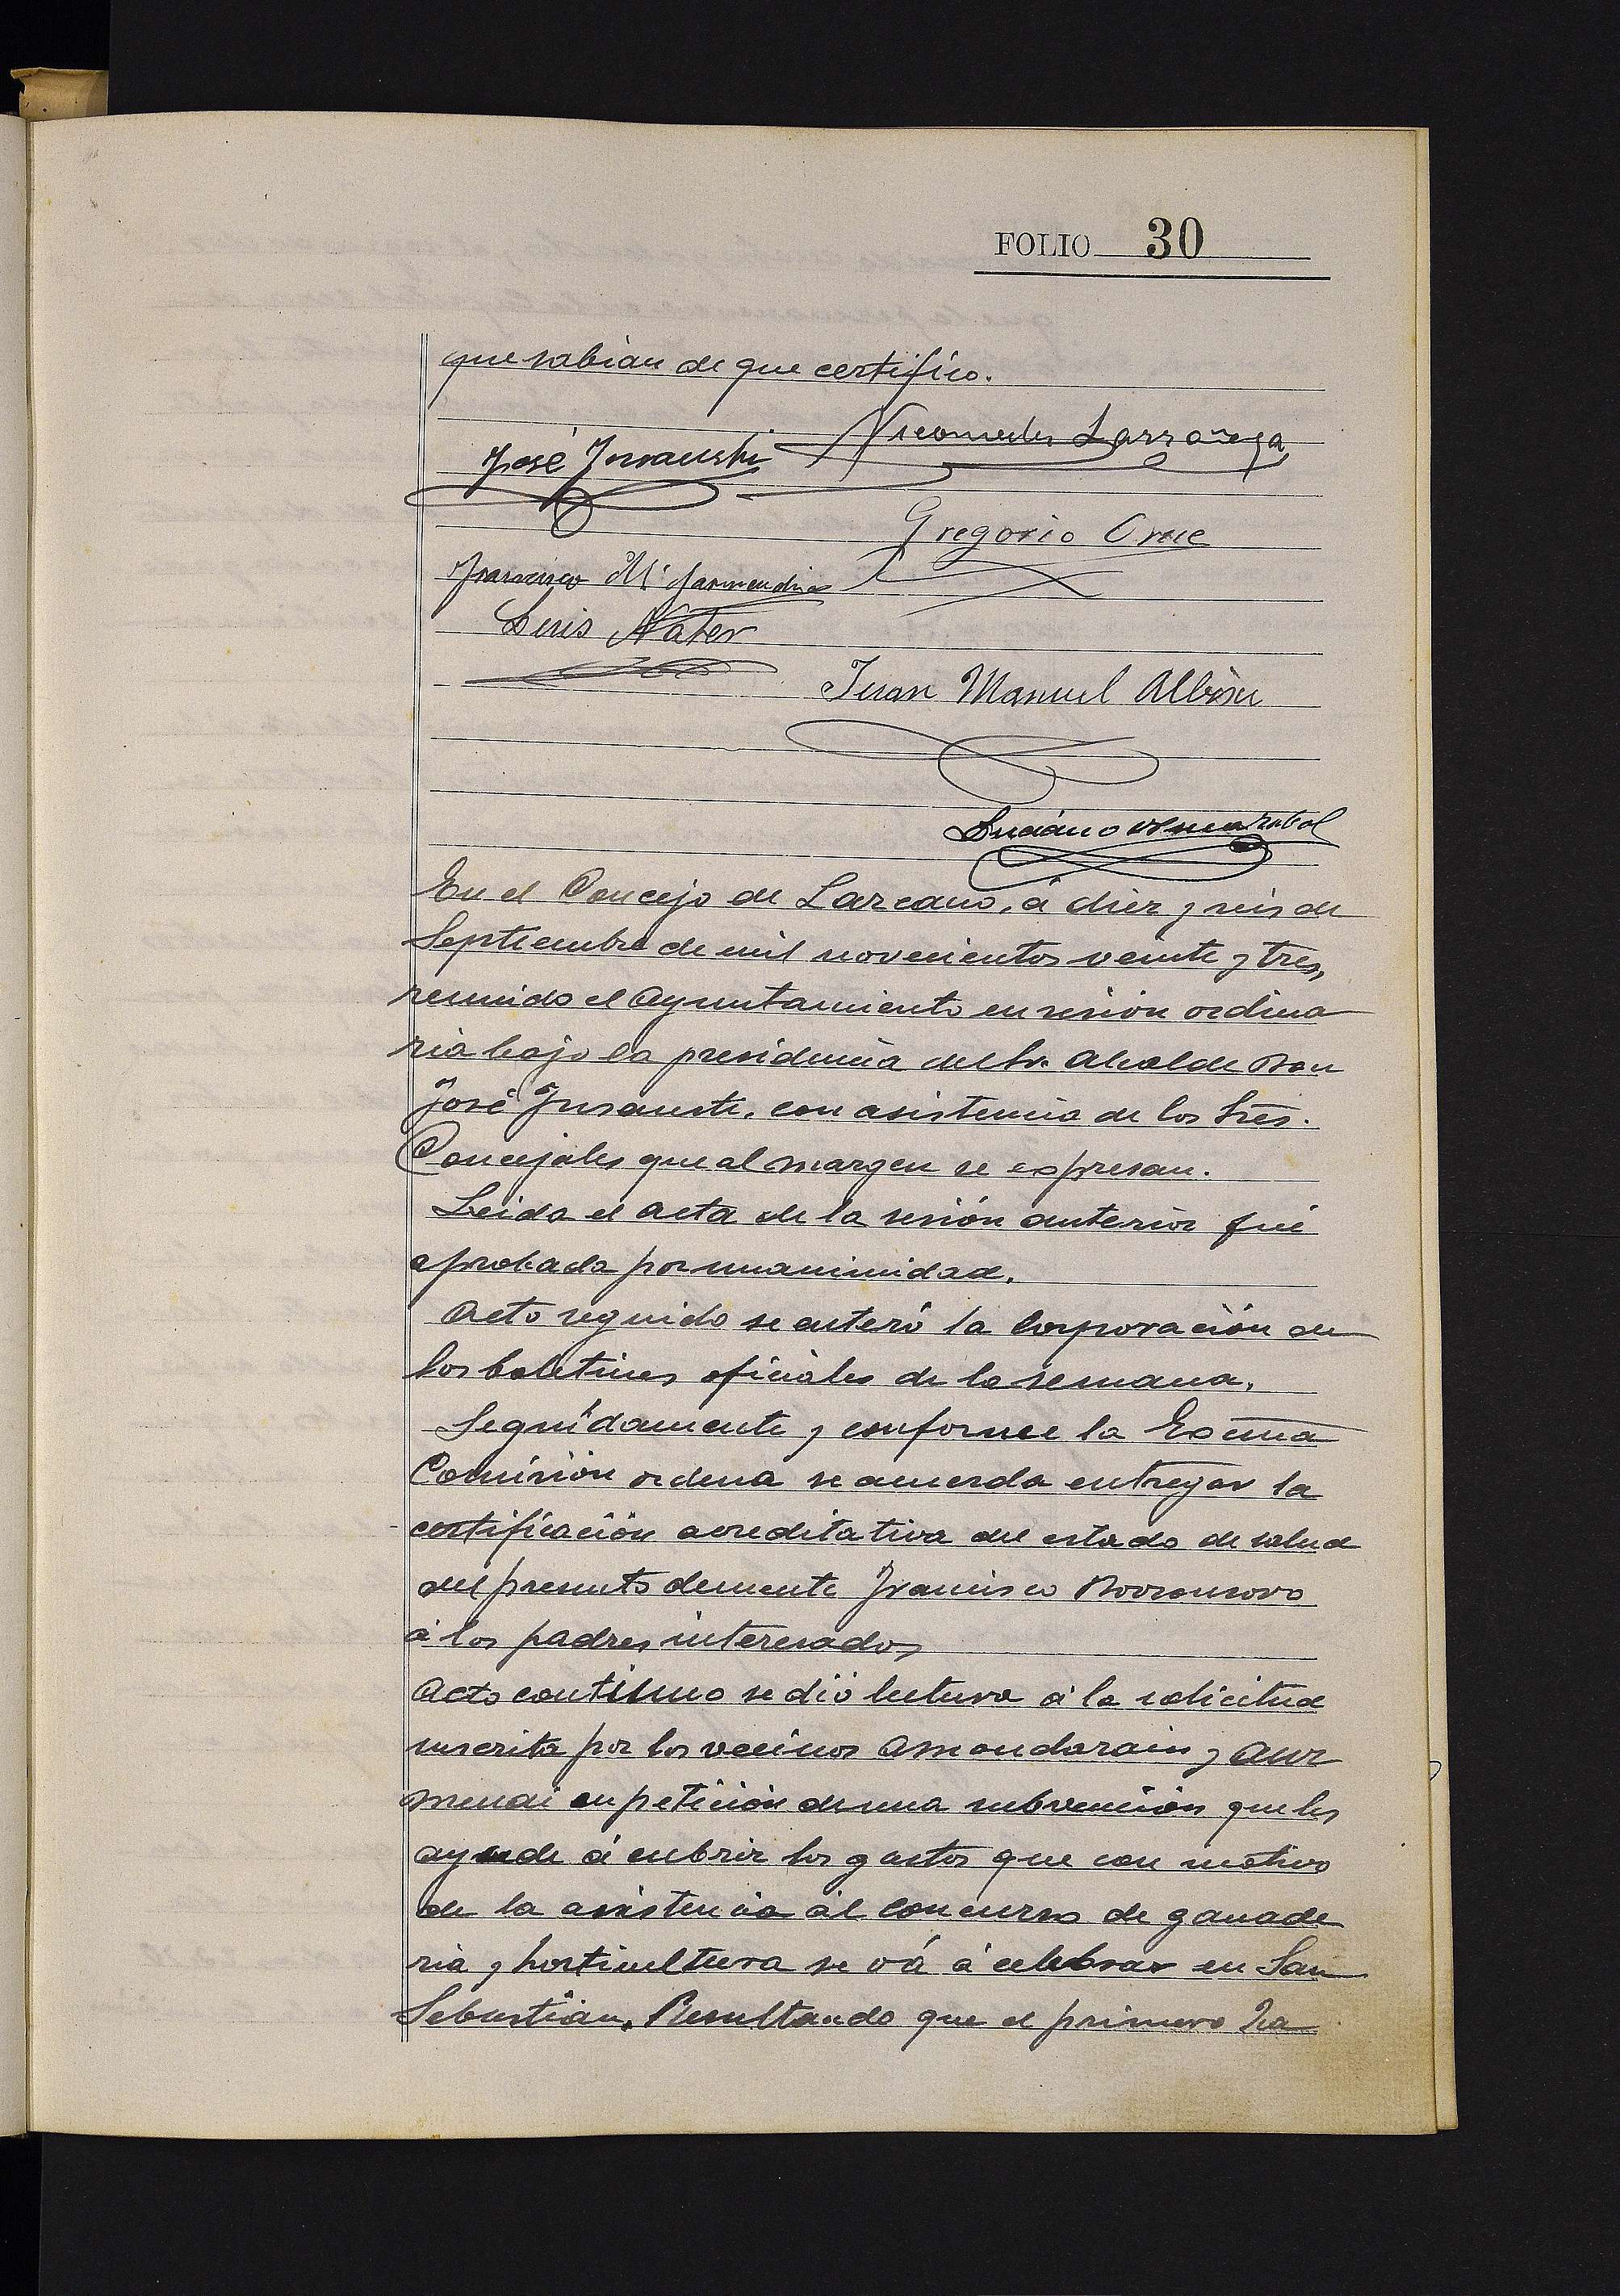 FOLIO 30
que sabian de que certifico.
José Insausti Nicomedes Larrañaga
Gregorio Orue
Francisco M. Garmendia
Luis Nater
Juan Manuel Albisu
Luciano
En el Concejo de Lazcano, á diez y seis de
Septiembre de mil novecientos veinte y tres,
reunido el Ayuntamiento en sesión ordina
ria bajo la presidencia del Sr. Alcalde Don
José Insausti, con asistencia de los Sres.
Concejales que al margen se expresan.
Leida el acta de la sesión anterior fué
aprobada por unanimidad.
Acto seguido se enteró la Corporación de
los boletines oficiales de la semana.
Seguidamente y conforme la Excma
Comisión ordena se acuerda entregar la
certificación acreditativa del estado de salud
del presunto demente Francisco
á los padres interesados
Acto contínuo se dió lectura á la solicitud
suscrita por los vecinos Amondarain y Aur
mendi en petición de una subvención que les
ayude á cubrir los gastos que con motivo
de la asistencia al Concurso de ganade
ria y horticultura se vá á celebrar en San
Sebastián. Resultando que el primero ha